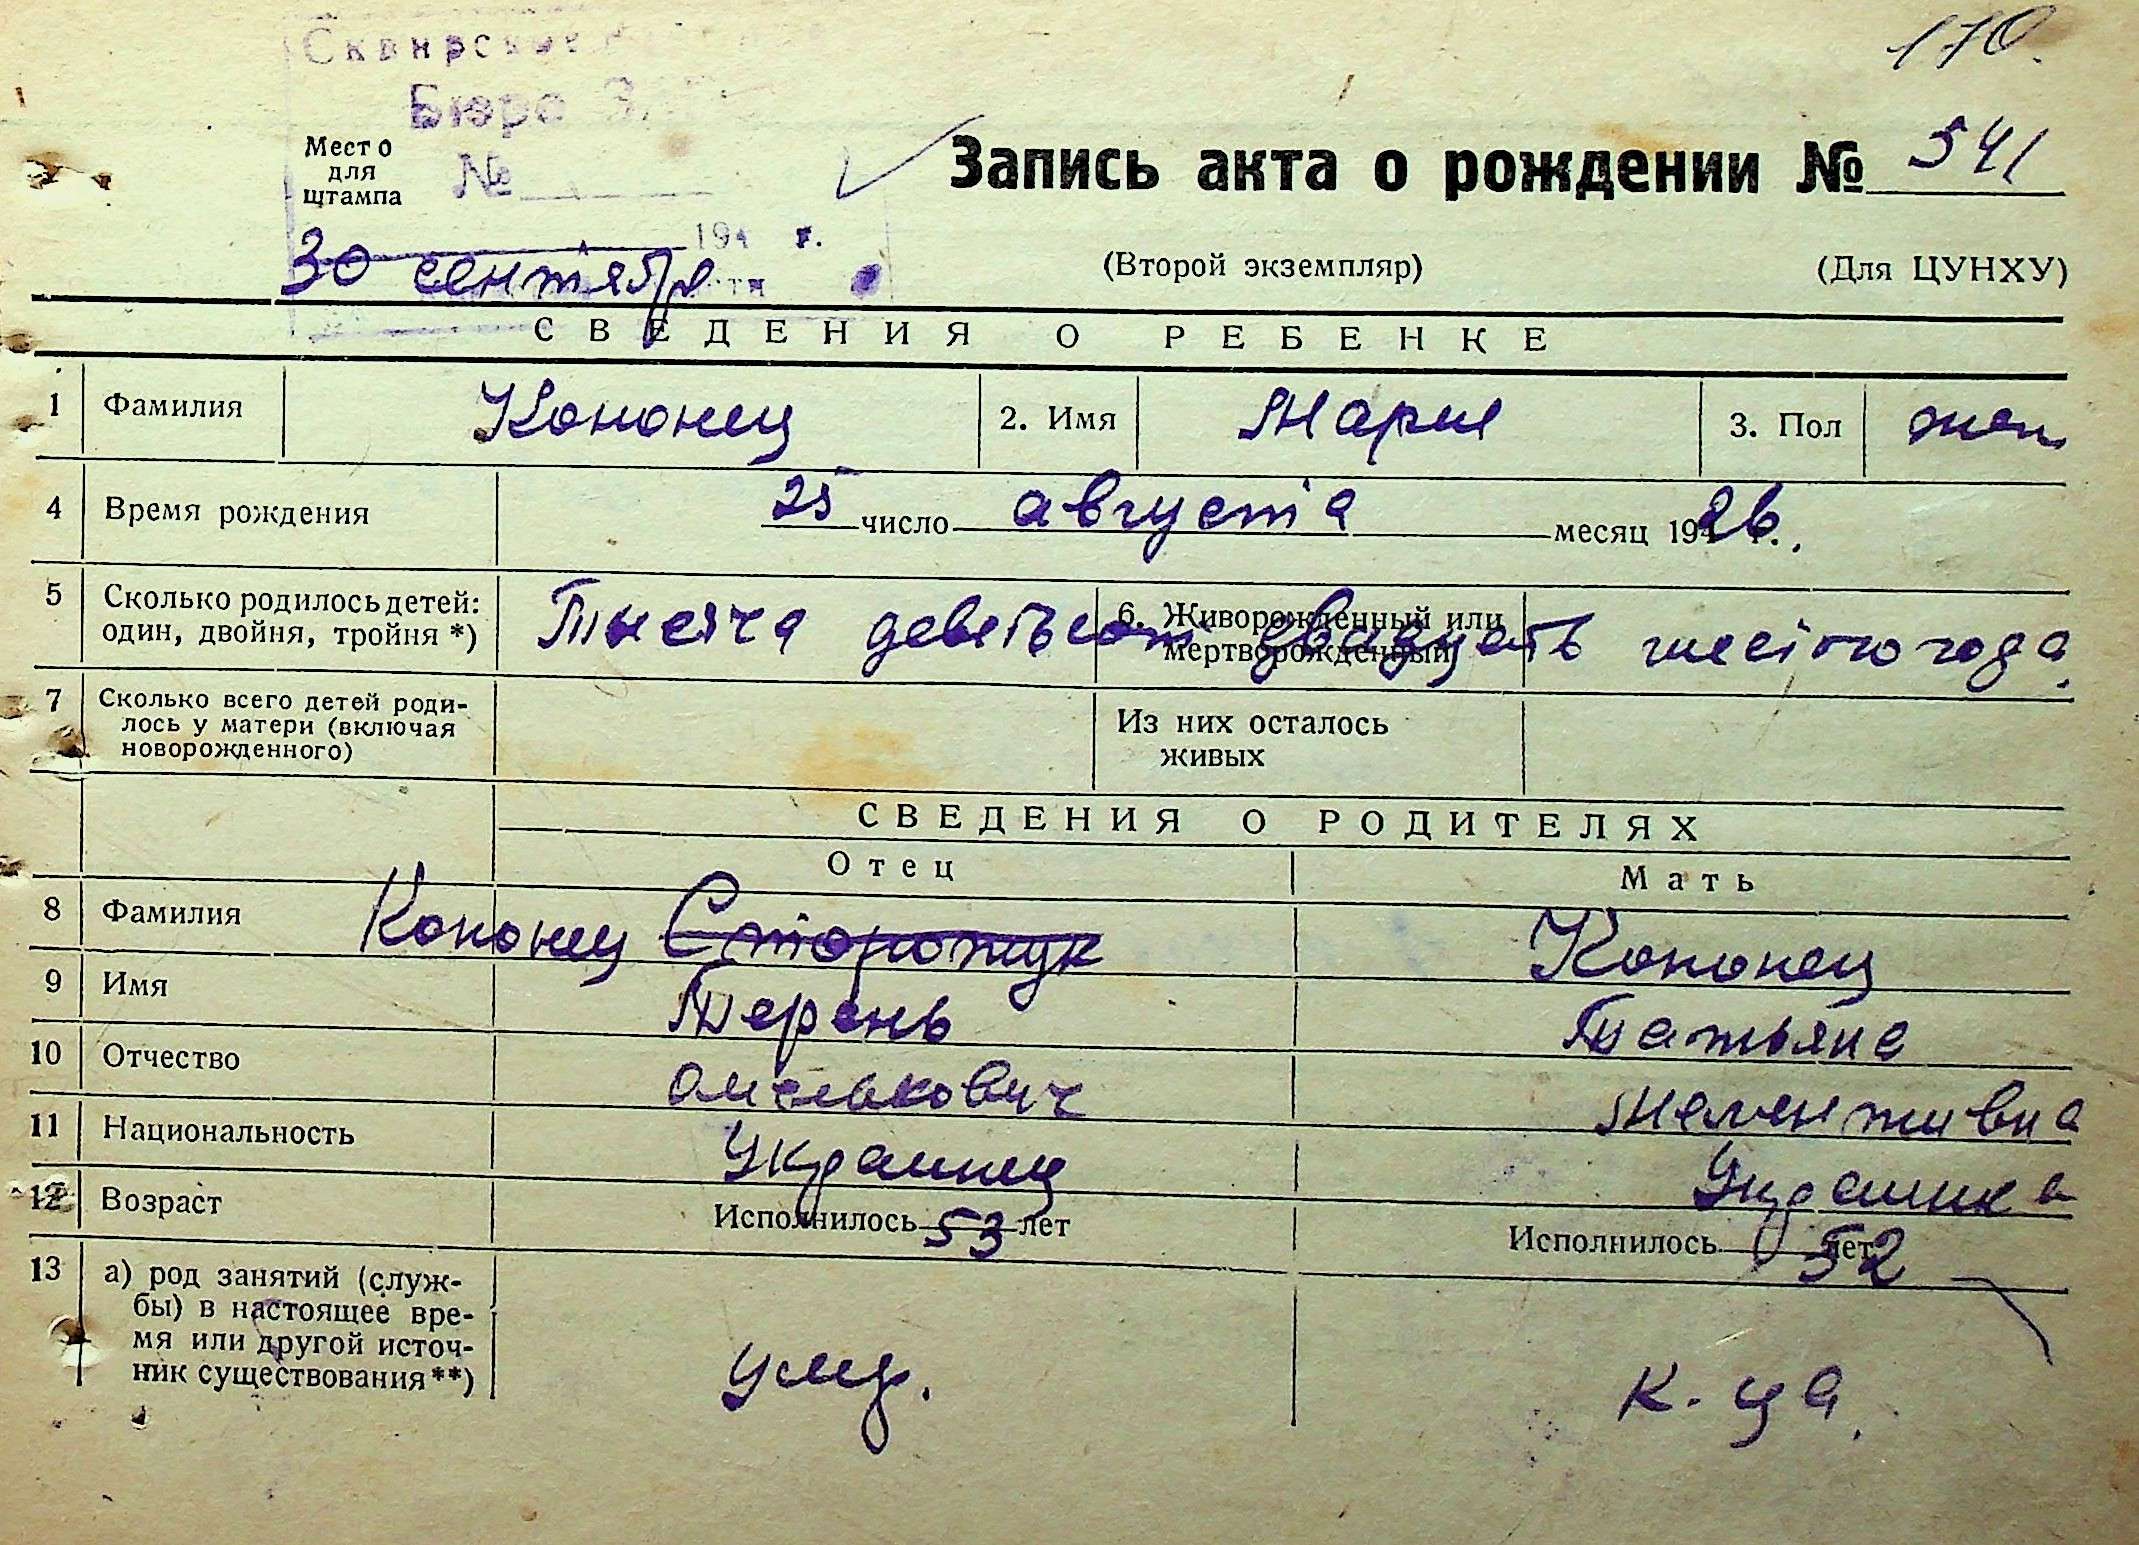 170.
Сквирское
Бюро З
Место
для
штампа
№
194 г.
30 сентября
Запись акта о рождении № 541
(Второй экземпляр)
(Для ЦУНХУ)
СВЕДЕНИЯ О РЕБЕНКЕ
1 Фамилия Кононец 2. Имя Мария 3. Пол жен
4 Время рождения 25 число августа месяц 1926.
5 Сколько родилось детей:
один, двойня, тройня *)
6. Живорожденный или
мертворожденный
Тысяча деветьсот двадцать шестого года.
7 Сколько всего детей роди-
лось у матери (включая
новорожденного)
Из них осталось
живых
СВЕДЕНИЯ О РОДИТЕЛЯХ
Отец Мать
8 Фамилия Кононец Сторожук Кононец
9 Имя Терень Татьяна
10 Отчество Омелькович
11 Национальность Украинец Украинка
12 Возраст Исполнилось 53 лет Исполнилось 52 лет
13 а) род занятий (служ-
бы) в настоящее вре-
мя или другой источ-
ник существования **)
умер. к-ца.